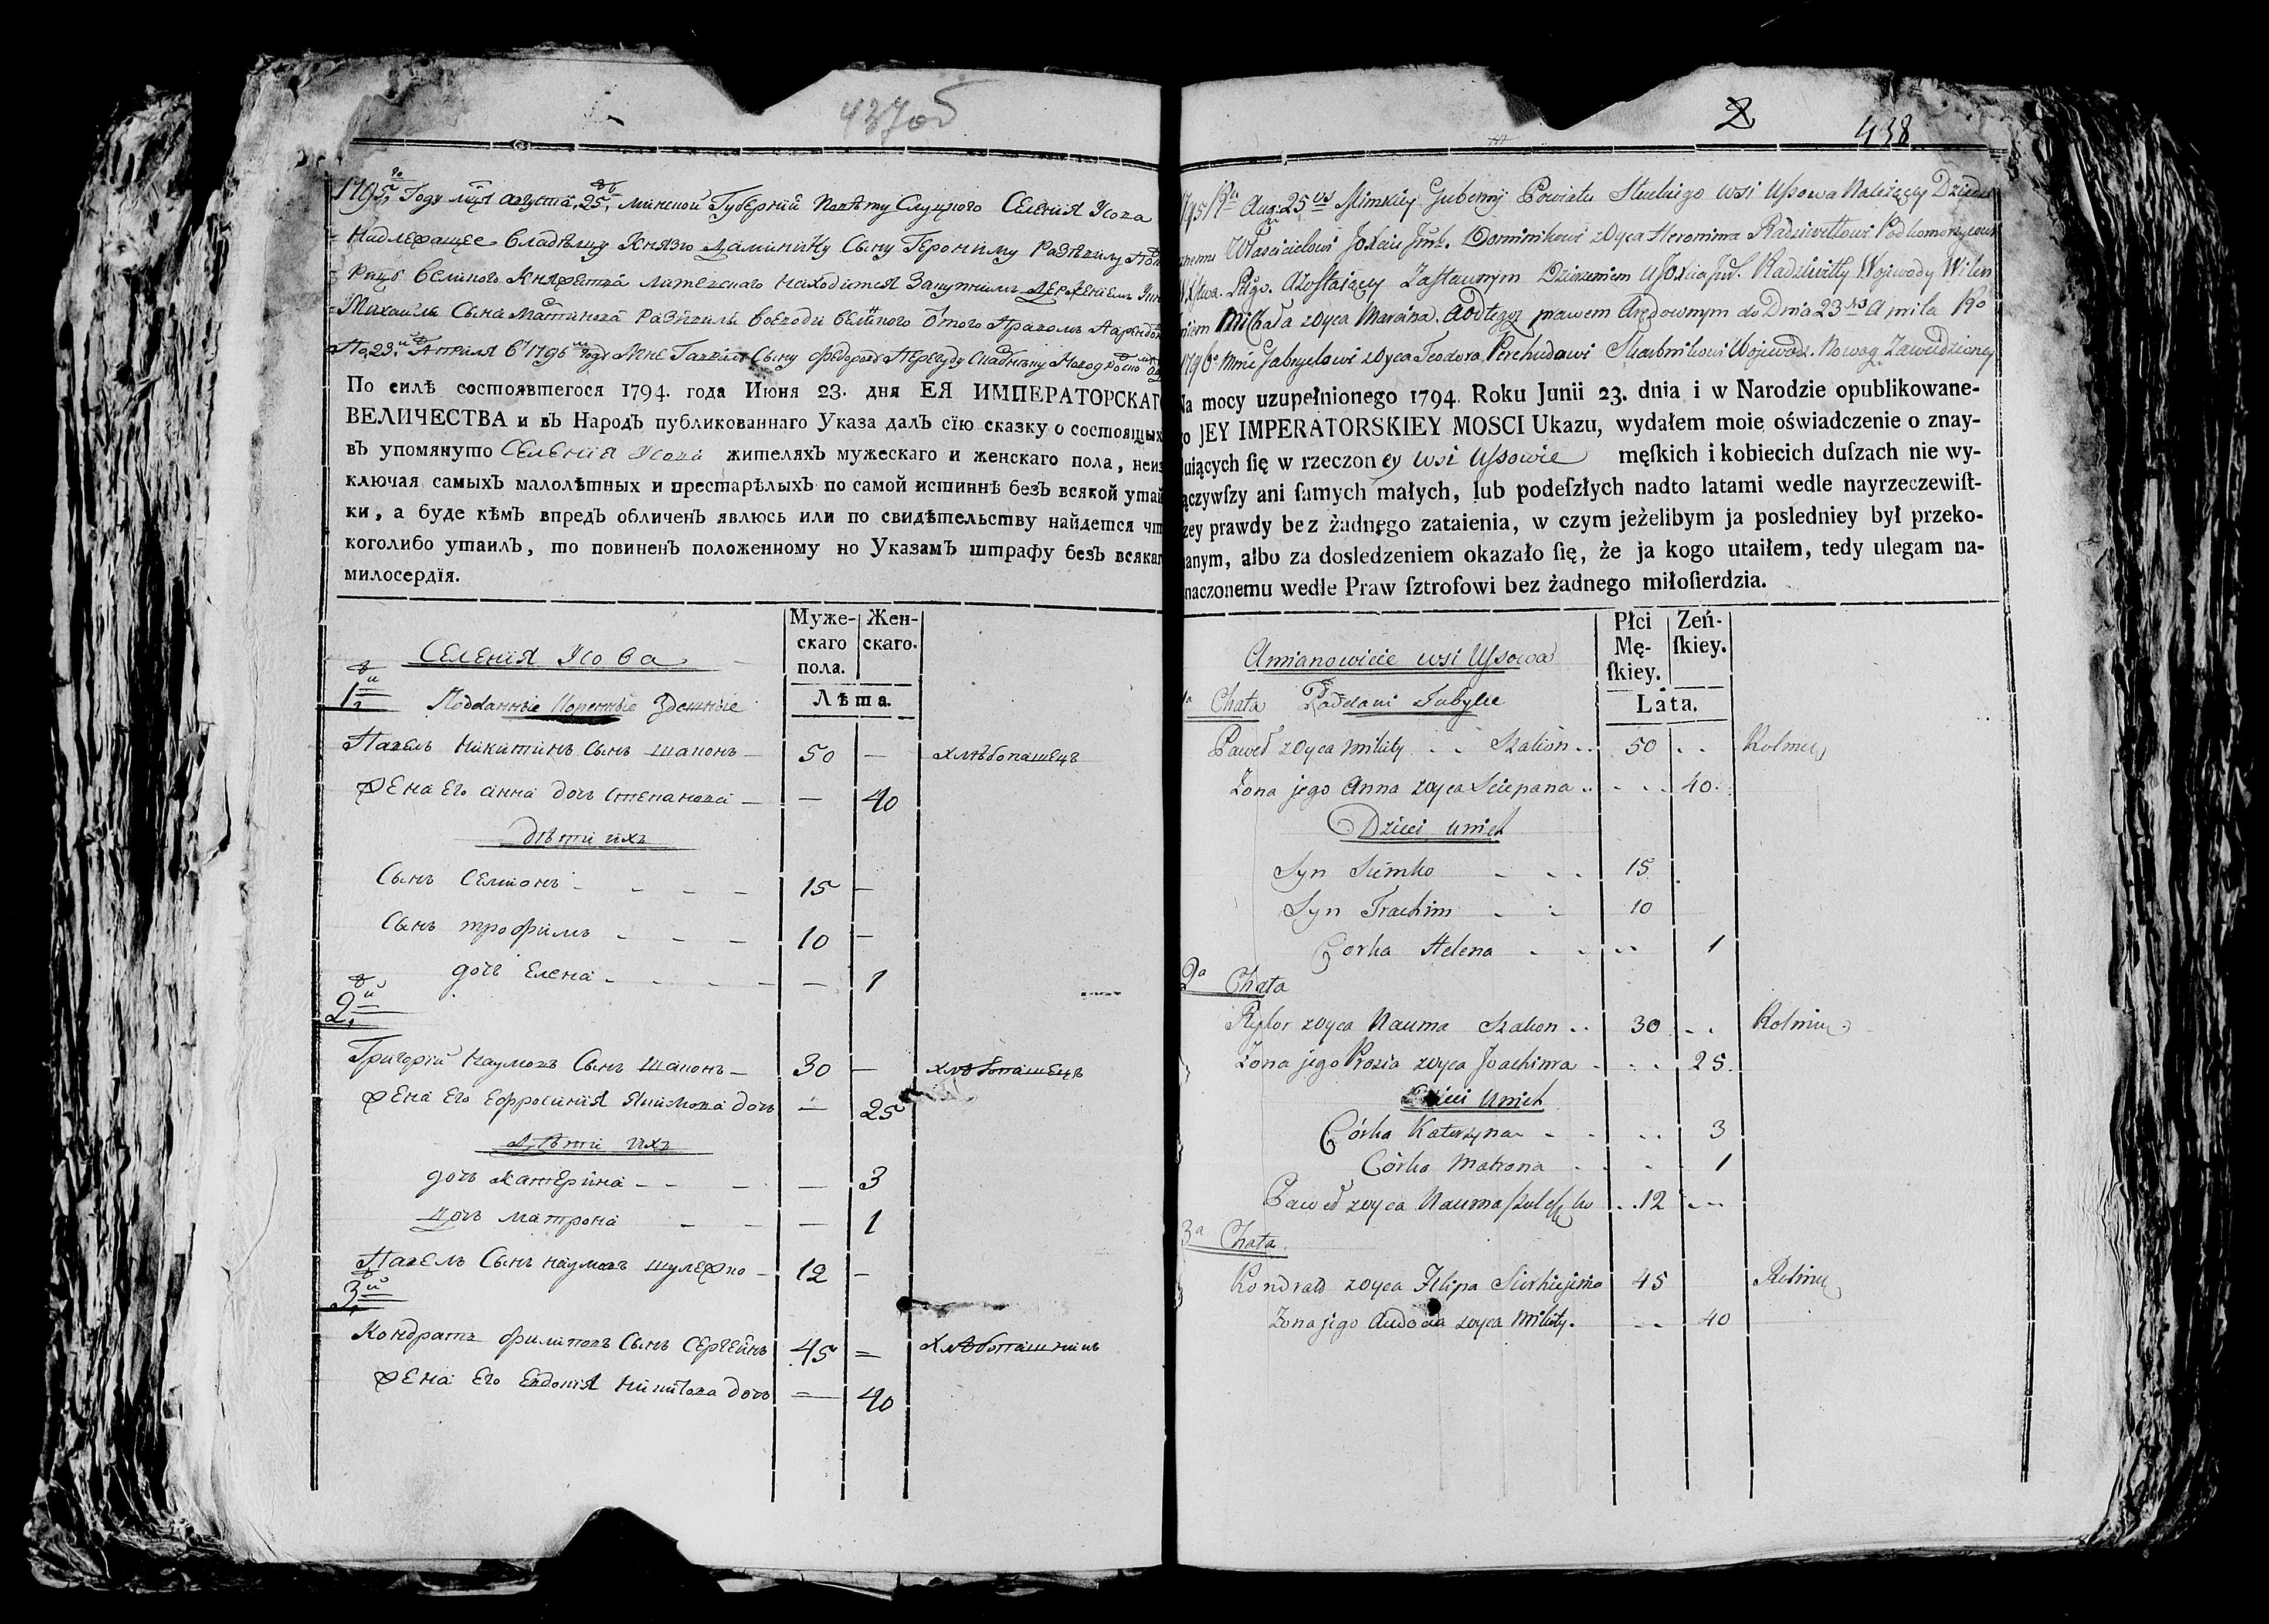 437об
1795го Году мца августа 25 минской Губерній Повѣту Слуцкого Селения Усова
Надлежащее владѣлцу Князю Даминику Сыну Герониму Радзивилу
великого Княжества литевского находится Закупнимъ Держениемъ
Михаила Сына Матвинова Радзивила воеводи
По 23 Апреля 1796 году мне Сыну Федорову
По силѣ состоявшегося 1794. года Июня 23. дня ЕЯ ИМПЕРАТОРСКАГО
ВЕЛИЧЕСТВА и вЪ НародЪ публикованнаго Указа далЪ сїю сказку о состоящихЪ
вЪ упомянуто Селенія Усова жителяхЪ мужескаго и женскаго пола, неиз
ключая самыхЪ малолѣтныхЪ и престарѣлыхЪ по самой истиннѣ безЪ всякой утай
ки, а буде кѣмЪ впредЪ обличенЪ явлюсь или по свидѣтельству найдется что
коголибо утаилЪ, то повиненЪ положенному по УказамЪ штрафу безЪ всякаго
милосердїя.
Муже-скаго пола. Жен-скаго.
Лѣта.
Селенія Усова
1й Подданніе Коренніе Здешніе
Павелъ Никитинъ Сынъ шапонъ 50 — хлѣбопашецъ
Жена Его анна дочь степанова — 40
дѣти ихъ
Сынъ Семионъ 15 —
Сынъ трофимъ 10 —
дочь Елена — 1
2й
Григорій Наумовъ Сынъ шапонъ 30 — хлѣбопашецъ
Жена Его Ефросинія Якимова дочь — 25
дѣти ихъ
дочь Катерина — 3
дочь матрона — 1
Павелъ Сынъ наумовъ шулежко 12 —
3й
Кондратъ филиповъ Сынъ Сергейнъ 45 = хлѣбопашникъ
Жена Его Евдокія Никитова дочь = 40
2
438
1795 Rku Aug: 25 vs Minskiey Gubernij Powiatu Słuckiego wsi Ussowa Należącey
Właścicielowi Dominikowi zOyca Heronima Radziwiłłowi Podkomorzemu
Zostaiącey Zastawnym Dzierżeniem Radziwiłły Wojewody Wilen
Michała zOyca Marcina. Aodtegoż prawem Arędownym do Dnia 23 Aprila Ro
1796 Mnie Gabryelowi zOyca Teodora Perchudowi Skarbnikowi Wojewodz. Nowog.
Na mocy uzupełnionego 1794. Roku Junii 23. dnia i w Narodzie opublikowane-
go JEY IMPERATORSKIEY MOSCI Ukazu, wydałem moie oświadczenie o znay-
duiących ſię w rzeczoney wsi Ussowie męſkich i kobiecich duſzach nie wy-
łączywſzy ani ſamych małych, lub podeſzłych nadto latami wedle nayrzeczewiſt-
ſzey prawdy bez żadnego zataienia, w czym jeżelibym ja posledniey był przeko-
nanym, albo za dosledzeniem okazało ſię, że ja kogo utaiłem, tedy ulegam na-
znaczonemu wedle Praw ſztrofowi bez żadnego miłoſierdzia.
Płci Mę-ſkiey. Zeń-ſkiey.
Lata.
Amianowicie wsi Ussowa
1a Chata Poddani Tubylce
Paweł zOyca Mikity Szalion 50 Rolnik
Zona jego Anna zoyca Sciepana 40
Dzieci unich
Syn Siemko 15
Syn Trachim 10
Corka Helena 1
2a Chata
Ryhor zoyca Nauma Szalion 30 Rolnik
Zona jego Prosia zoyca Joachima 25
Dzieci unich
Córka Katerzyna 3
Córka Matrona 1
Paweł zoyca Nauma 12
3a Chata
Kondrad zoyca Filipa 45 Rolnik
Zona jego Audocia zoyca Mikity. 40